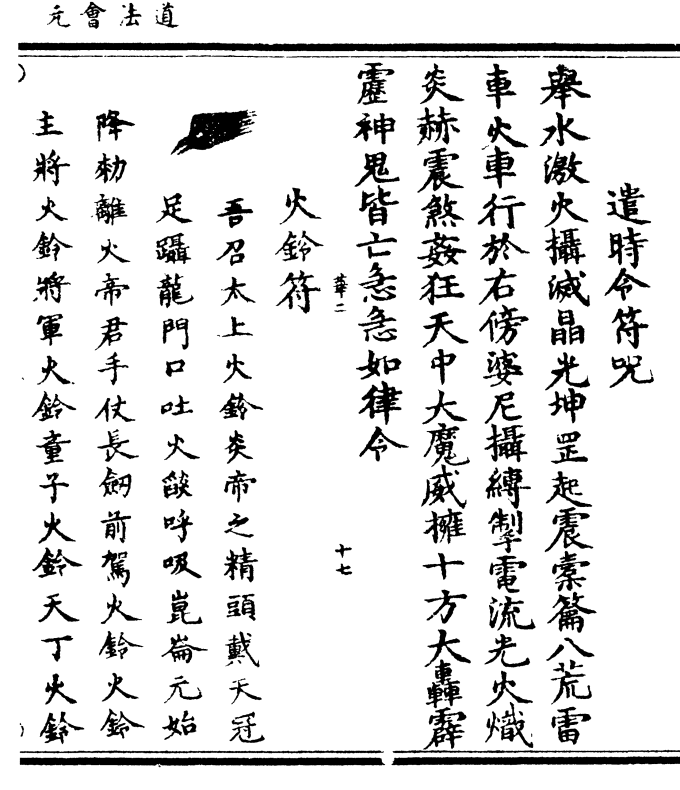 道法會元
遣時令符呪
舉水激火攝滅晶光坤罡起震橐籥八荒雷
車火車行於右傍婆尼攝縛掣電流光火熾
炎赫震煞姦狂天中大魔威擁十方大轟霹
靂神鬼皆亡急急如律令
華二
十七
火鈴符
吾召太上火鈴炎帝之精頭戴天冠
足躡龍門口吐火燄呼吸崑崙元始
降勑離火帝君手仗長劒前駕火鈴火鈴
主將火鈴將軍火鈴童子火鈴天丁火鈴